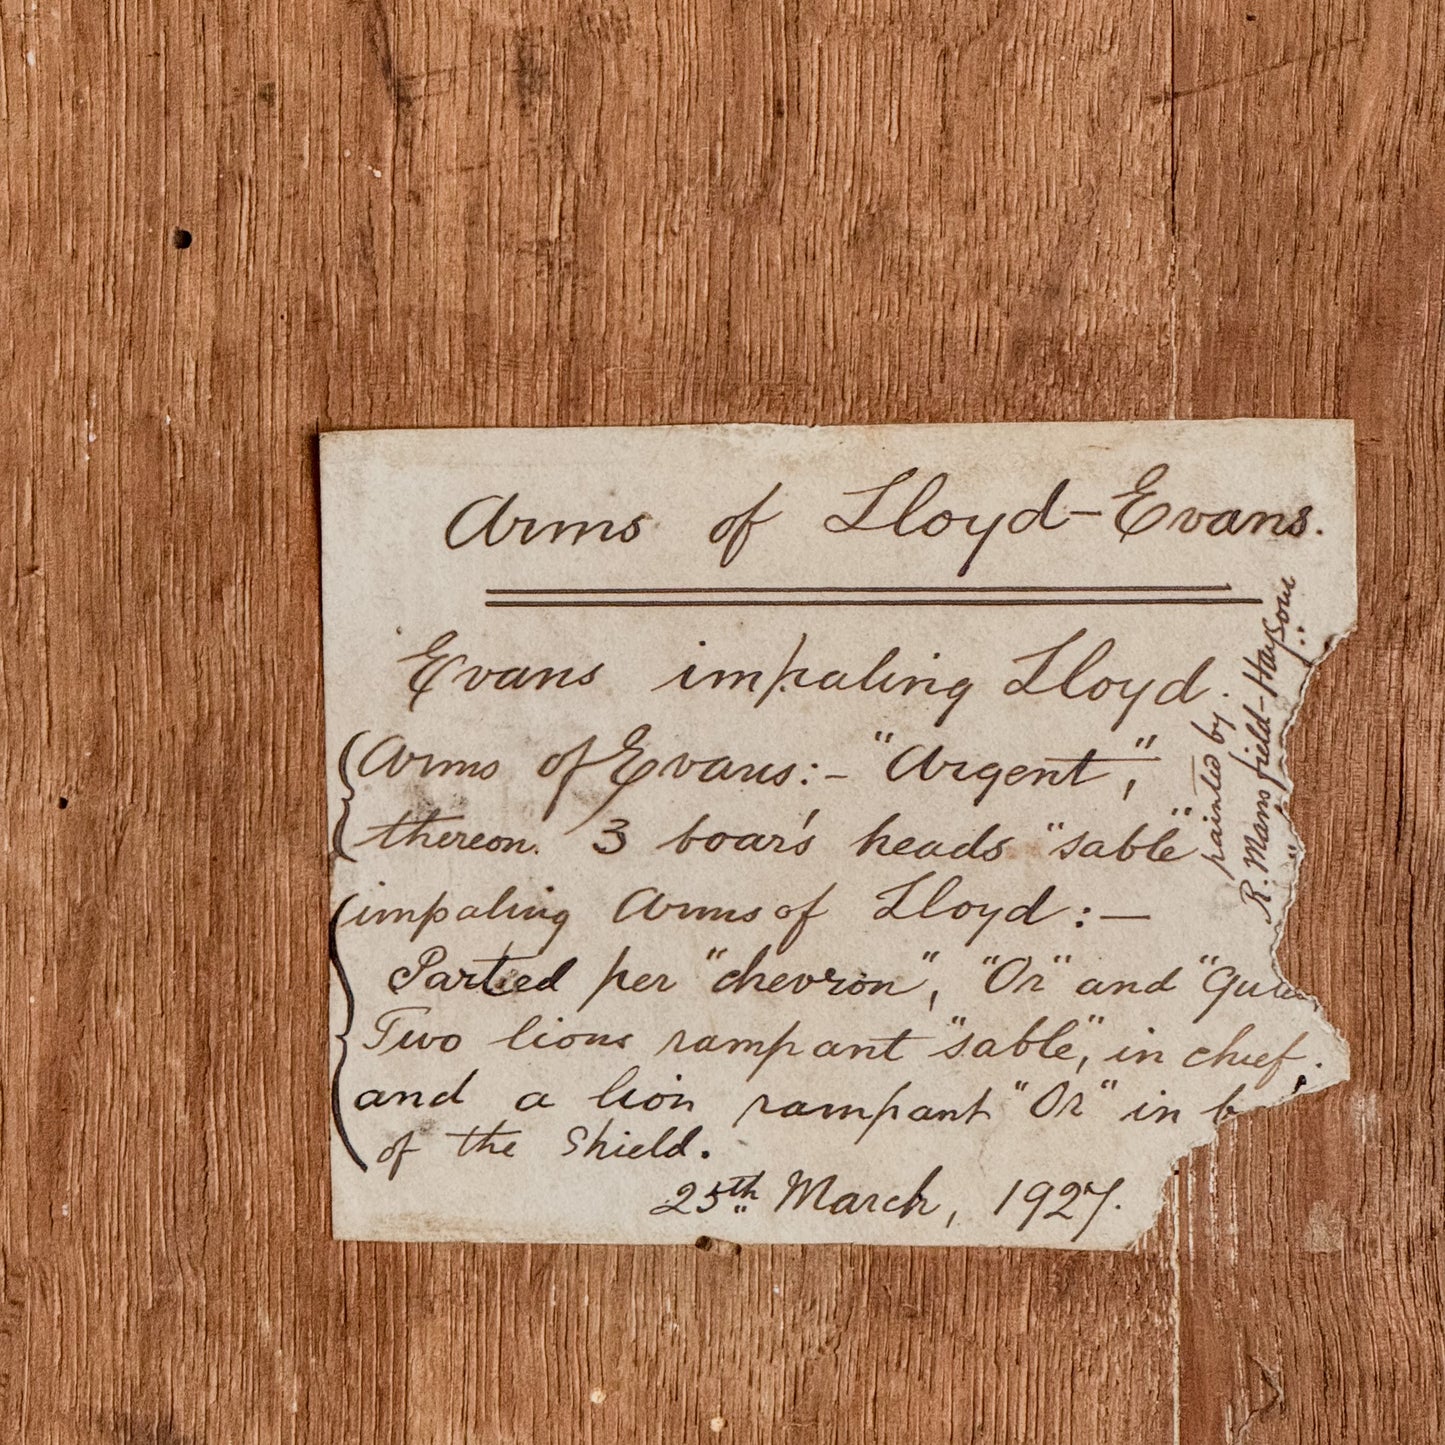 Arms of Lloyd-Evans.
Evans impaling Lloyd.
Arms of Evans:- "Argent",
thereon. 3 boar's heads "sable"
impaling Arms of Lloyd:—
Parted per "chevron", "Or" and
Two lions rampant "sable", in chief.
and a lion rampant "Or" in
of the Shield.
25th March, 1927.
painted by
R. Mansfield-Haysom